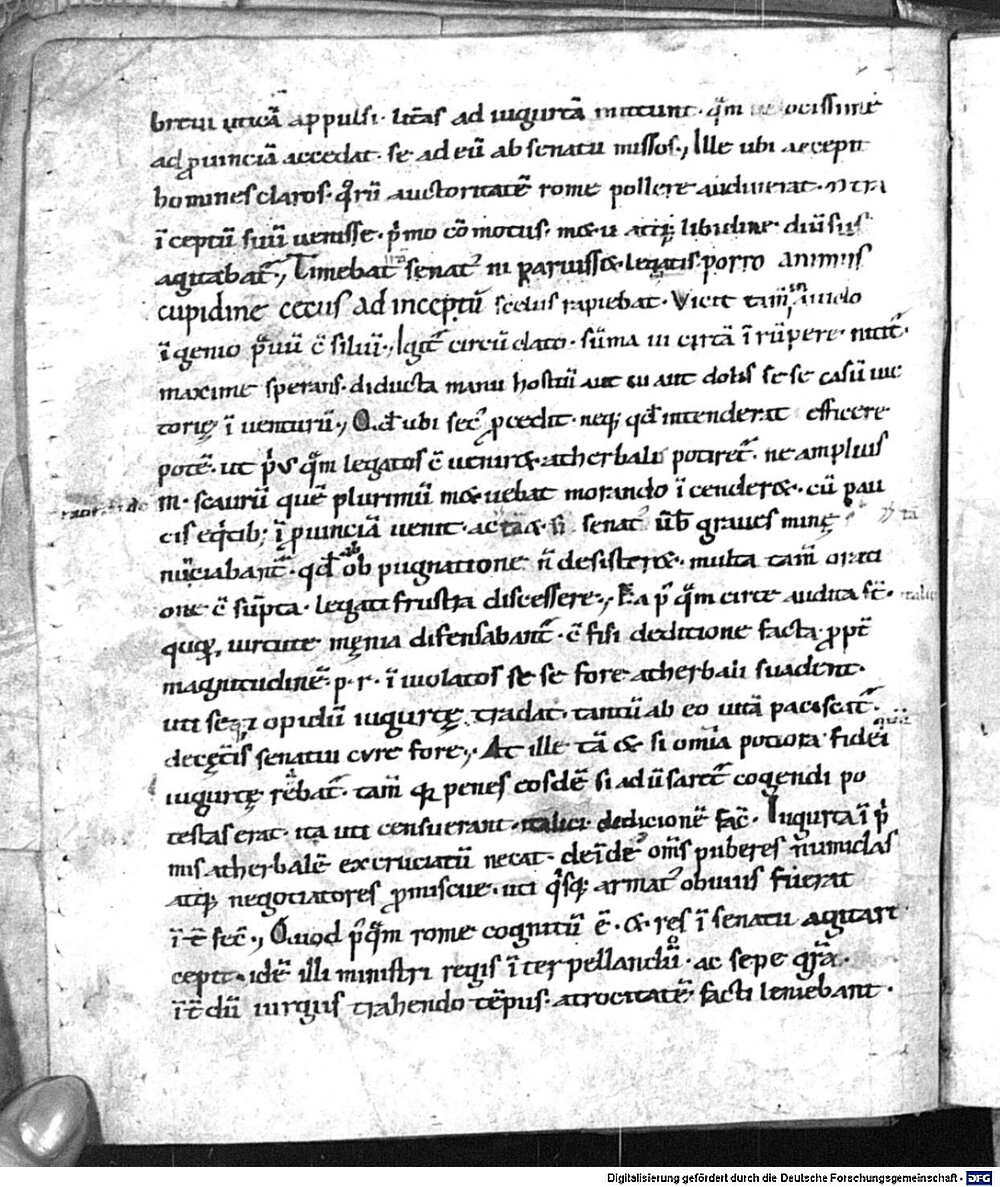 breui uticā appulsi· litt̄as ad iugurtā mittunt· q̄m uelocissime
ad ꝓuinciā accedat· se ad eū ab senatu missos·, Ille ubi accepit
homines claros· q̄rū auctoritatē rome pollere audiuerat· ↄtra
īceptū suū uenisse· p̍mo cōmotus· m&u atq; libidine· diūsus
agitabat̄·, Timebat irā senat᷒ ni paruiss& legatis porro animus
cupidine cecus ad inceptū scelus rapiebat· Vicit tam̄ in auido
īgenio p̄uū c̄siliū·, Igit̄ circūdato· sūma ui cirtā īrūpere nitit̄·
maxime sperans· diducta manu hostiū aut ui aut dolis se se casū uic
torię īuenturū·, Qd̄ ubi sec᷒ ꝓcedit· neq; qd̄ intenderat efficere
potē· ut p̍us q̄m legatos c̄uenir& atherbalis potiret̄· ne amplius
m· scaurū quē plurimū m&uebat morando īcender&· cū pau
cis eq̍tib; ī ꝓuinciā uenit· ac tā&si senat᷒ ūb graues minę
nūciabant̄· qd̄ ab obpugnatione n̄ desister&· multa tam̄ orati
one c̄sūpta· legati frustra discessere·, Ea p᷒ q̄m cirte audita st̄· italici
quoꝝ uirtute męnia difensabant̄· c̄fisi deditione facta ꝓpt̄
magnitudinē· p· r· īuiolatos se se fore atherbali suadent·
uti se & opidū iugurtę tradat· tantū ab eo uitā paciscat̄·
de cęt̄is senatui cure fore·, At ille tā&si omīa potiora fidei
iugurtę rēbat̄· tam̄ q; penes eosdē si aduersaret̄ cogendi po
testas erat· ita uti censuerant· italici dedicionē fac̄· Iugurta ī p̍
mis atherbalē excruciatū necat· deīde om̄s puberes numidas
atq; negotiatores ꝓmiscue· uti q̍sq; armat᷒ obuius fuerat
īt̄fec̄·, Quod p᷒q̄m rome cognitū ē· & res ī senatu agitari
cepit· idē illi ministri regis īterpellando· ac sepe gr̄a·
īt̄dū iurgiis trahendo tēpus· atrocitatē facti leniebant·
Digitalisierung gefördert durch die Deutsche Forschungsgemeinschaft - DFG